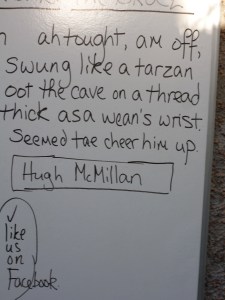 ah tought, am off,
Swung like a tarzan
oot the cave on a thread
thick as a wean's wrist.
Seemed tae cheer him up.
Hugh McMillan
✓
like
us
on
Facebook